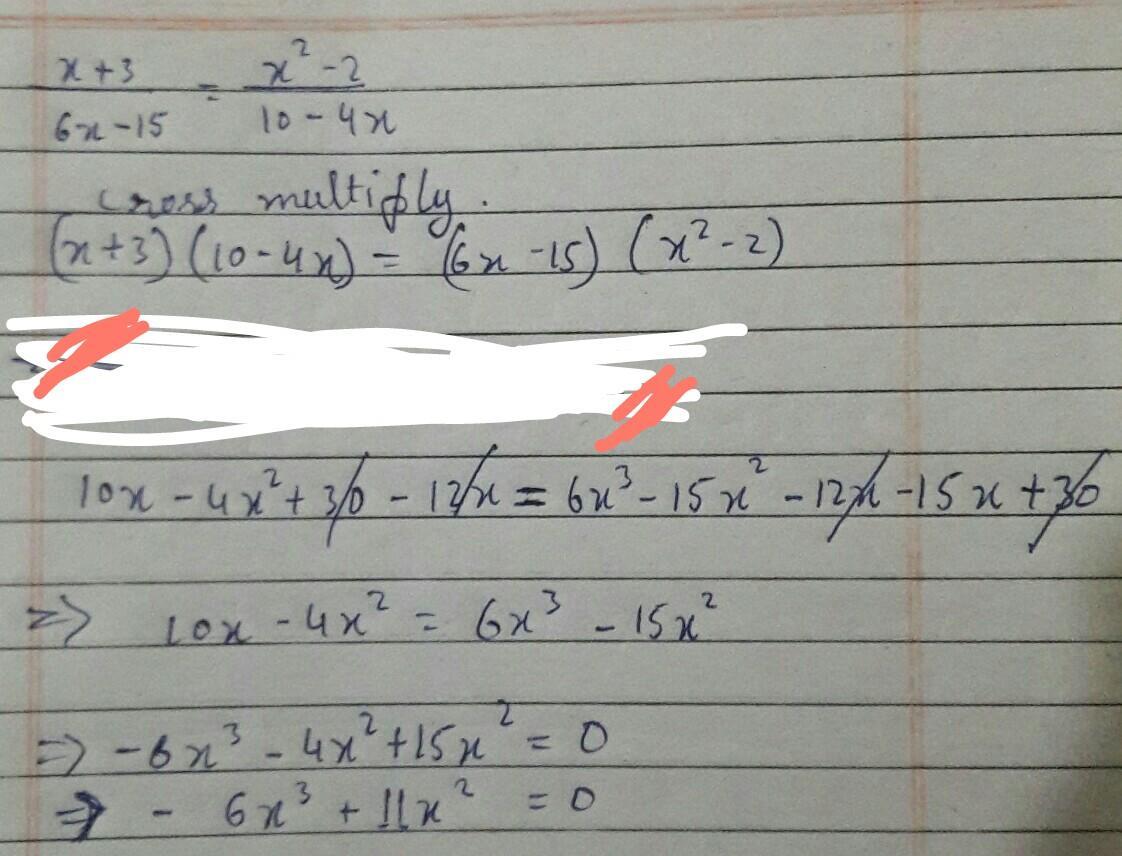 x+3 / 6x-15 = x²-2 / 10-4x
cross multiply.
(x+3)(10-4x) = (6x-15) (x²-2)
10x - 4x² + 30 - 12x = 6x³ - 15x² - 12x - 15x + 30
=> 10x - 4x² = 6x³ - 15x²
=> -6x³ - 4x² + 15x² = 0
=> - 6x³ + 11x² = 0